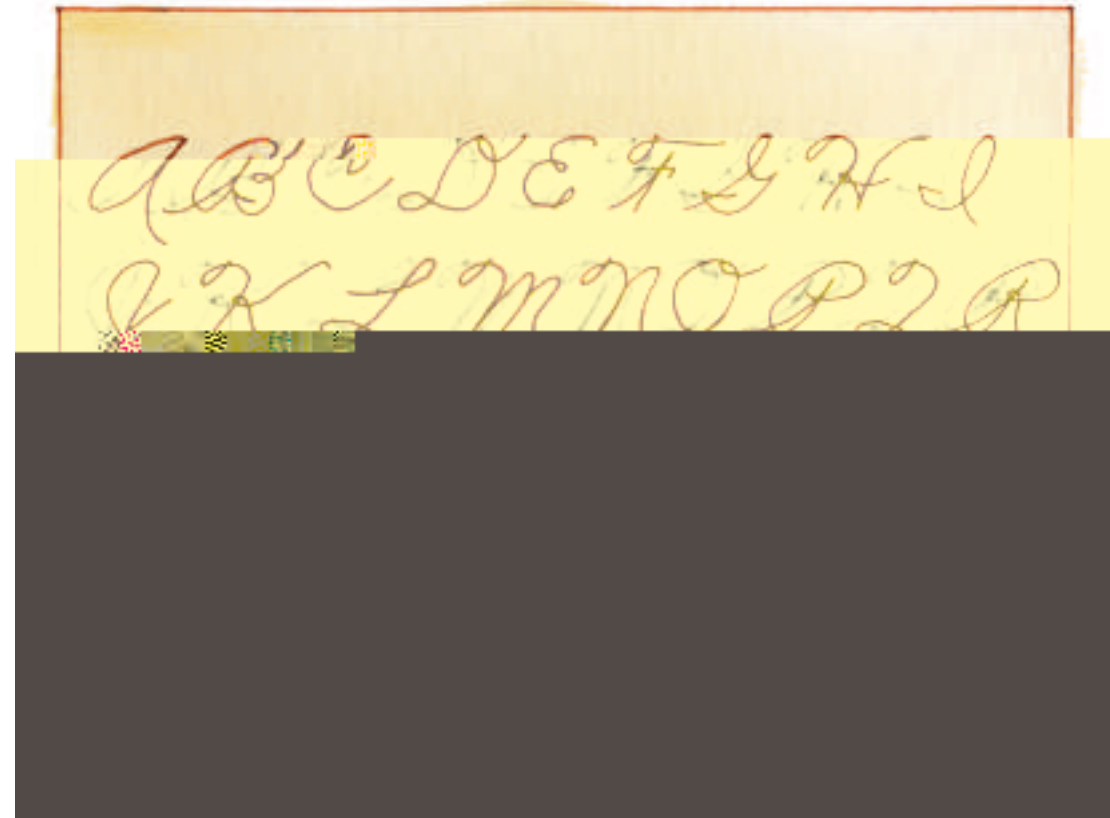 A B C D E F G H I
J K L M N O P Q R